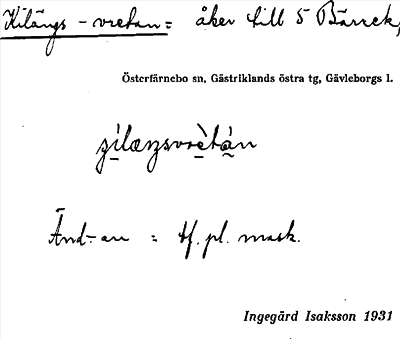 Kilängs-vretan = åker till 5 Bärrek,
Österfärnebo sn, Gästriklands östra tg, Gävleborgs l.
Änd.- an = tf. pl. mask.
Ingegärd Isaksson 1931